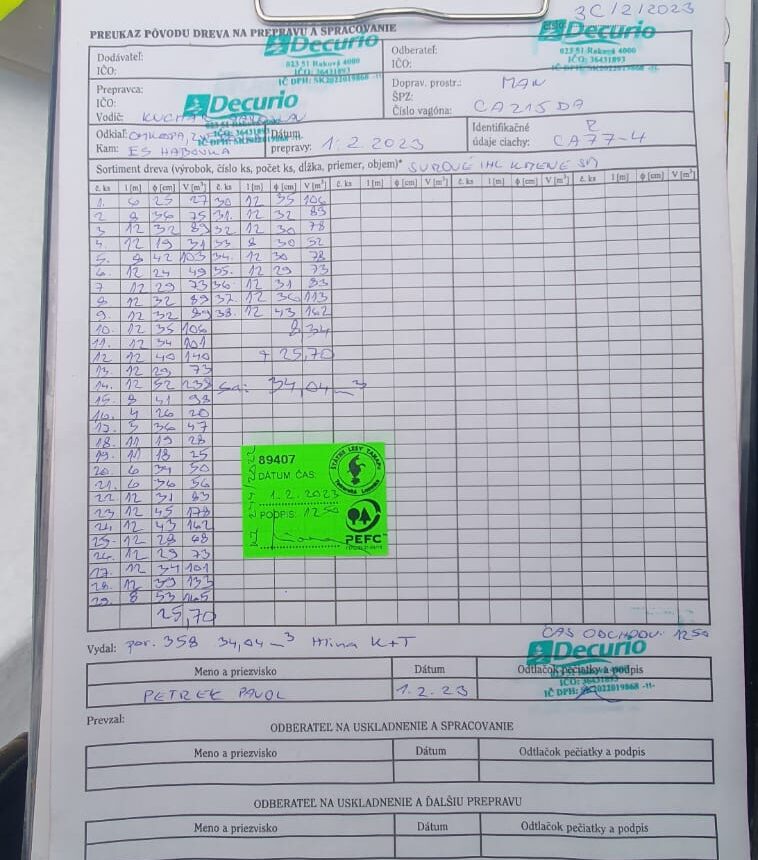 3C/2/2023
PREUKAZ PÔVODU DREVA NA PREPRAVU A SPRACOVANIE
Decurio
023 51 Raková 4000
IČO: 36431893
IČ DPH: SK2022019868 -11-
Decurio
023 51 Raková 4000
IČO: 36431893
IČ DPH: SK2022019868
Dodávateľ:
IČO:
Odberateľ:
IČO:
Prepravca:
IČO:
Vodič:
Decurio
Doprav. prostr.: MAN
ŠPZ:
Číslo vagóna: CA215DA
Odkiaľ:
Kam: ES HABOVKA
Dátum
prepravy: 1.2.2023
Identifikačné
údaje ciachy: CA77-4
Sortiment dreva (výrobok, číslo ks, počet ks, dĺžka, priemer, objem)* SUROVÉ IHL KMENE
č. ks l [m] ϕ [cm] V [m³] č. ks l [m] ϕ [cm] V [m³] č. ks l [m] ϕ [cm] V [m³] č. ks l [m] ϕ [cm] V [m³] č. ks l [m] ϕ [cm] V [m³]
1. 6 25 27 30 12 35 106
2 8 36 75 31. 12 32 89
3 12 32 89 32. 12 30 78
4. 12 19 31 33 8 30 52
5. 8 42 103 34. 12 30 78
6. 12 24 49 35. 12 29 73
7 12 29 73 36. 12 31 83
8 12 32 89 37. 12 36 113
9. 12 32 89 38. 12 43 162
10. 12 35 106 8,34
11. 12 34 101
12 12 40 140 + 25,70
13. 12 29 73
14. 12 52 238 Sa: 34,04 m³
15. 8 41 98
16. 4 26 20
17. 5 36 47
18. 11 19 28
19. 11 18 25
20. 6 34 50
21. 6 36 56
22. 12 31 83
23 12 45 178
24. 12 43 162
25. 12 28 68
26. 12 29 73
27. 12 34 101
28. 12 39 133
29. 8 53 165
25,70
89407
DÁTUM ČAS:
1.2.2023
PODPIS: 1250
ŠTÁTNE LESY TANAPU
PEFC
Vydal: por. 358 34,04 m³ Hlina K+T
ČAS ODCHODU: 1250
Decurio
IČO: 36431893
IČ DPH: SK2022019868 -11-
Meno a priezvisko Dátum Odtlačok pečiatky a podpis
PETREK PAVOL 1.2.23
Prevzal:
ODBERATEĽ NA USKLADNENIE A SPRACOVANIE
Meno a priezvisko Dátum Odtlačok pečiatky a podpis
ODBERATEĽ NA USKLADNENIE A ĎALŠIU PREPRAVU
Meno a priezvisko Dátum Odtlačok pečiatky a podpis